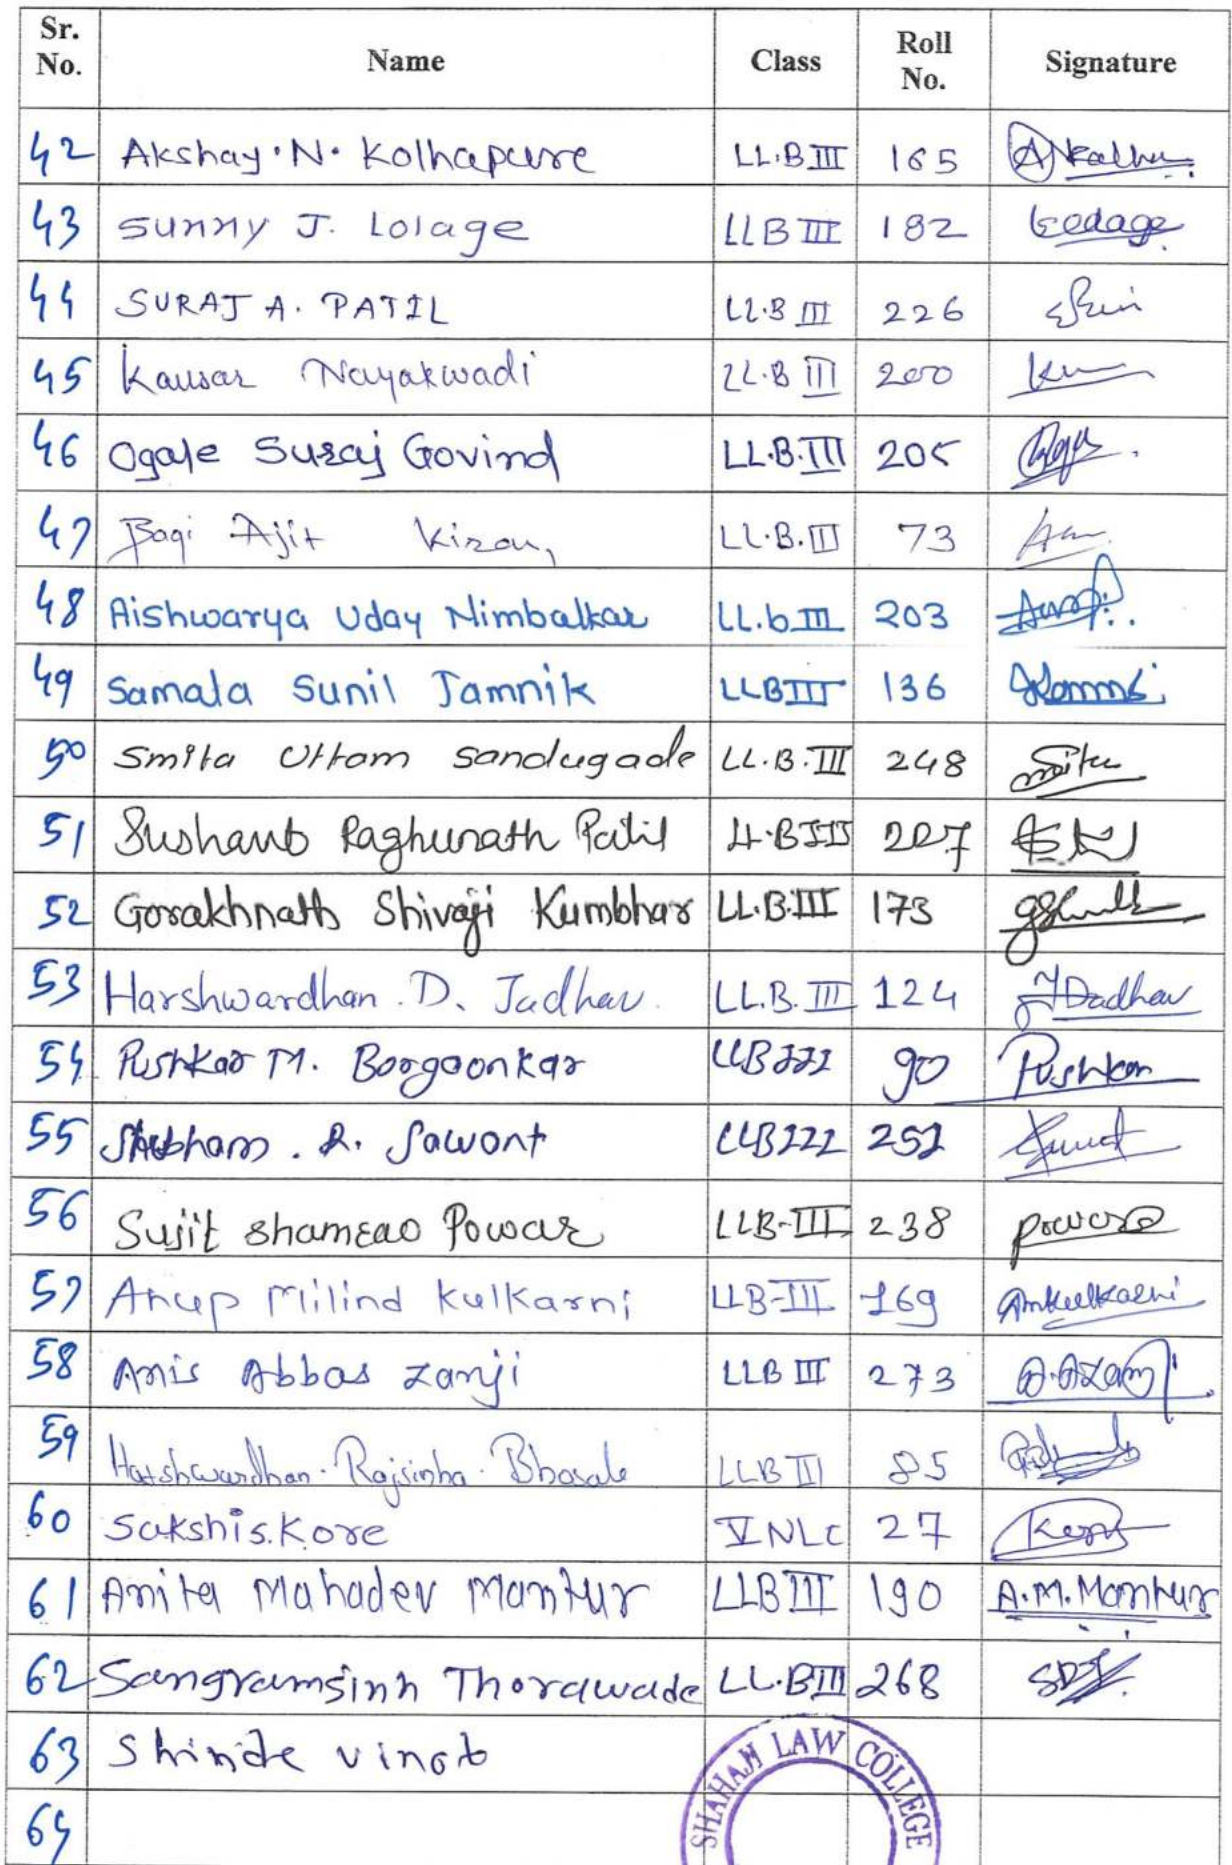 Sr. No. Name Class Roll No. Signature
42 Akshay.N. Kolhapure LL.B III 165
43 Sunny J. Lolage LLB III 182
44 SURAJ A. PATIL LL.B III 226
45 Kausar Nayakwadi LL.B III 200
46 Ogale Suraj Govind LL.B.III 205
47 Bagi Ajit Kiran LL.B.III 73
48 Aishwarya Uday Nimbalkar LL.b III 203
49 Samata Sunil Jamnik LLB III 136
50 Smita Uttam Sandugade LL.B.III 248
51 Sushant Raghunath Patil LL.B III 227
52 Gorakhnath Shivaji Kumbhar LL.B.III 173
53 Harshwardhan. D. Jadhav. LL.B. III 124 Jadhav
54 Pushkar M. Borgaonkar LLB III 90 Pushkar
55 Shubham. R. Sawant LLB III 251
56 Sujit Shamrao Powar LLB-III 238
57 Anup Milind Kulkarni LLB-III 169 Amkulkarni
58 Anis Abbas Zanji LLB III 273
59 Harshwardhan. Rajsinha. Bhosale LLB III 85
60 Sakshi S. Kore V NLC 27 Kore
61 Anita Mahadev Mantur LLB III 190 A.M.Mantur
62 Sangramsinh Thorawade LL.B III 268
63 Shinde vinob
64
SHAHAJI LAW COLLEGE